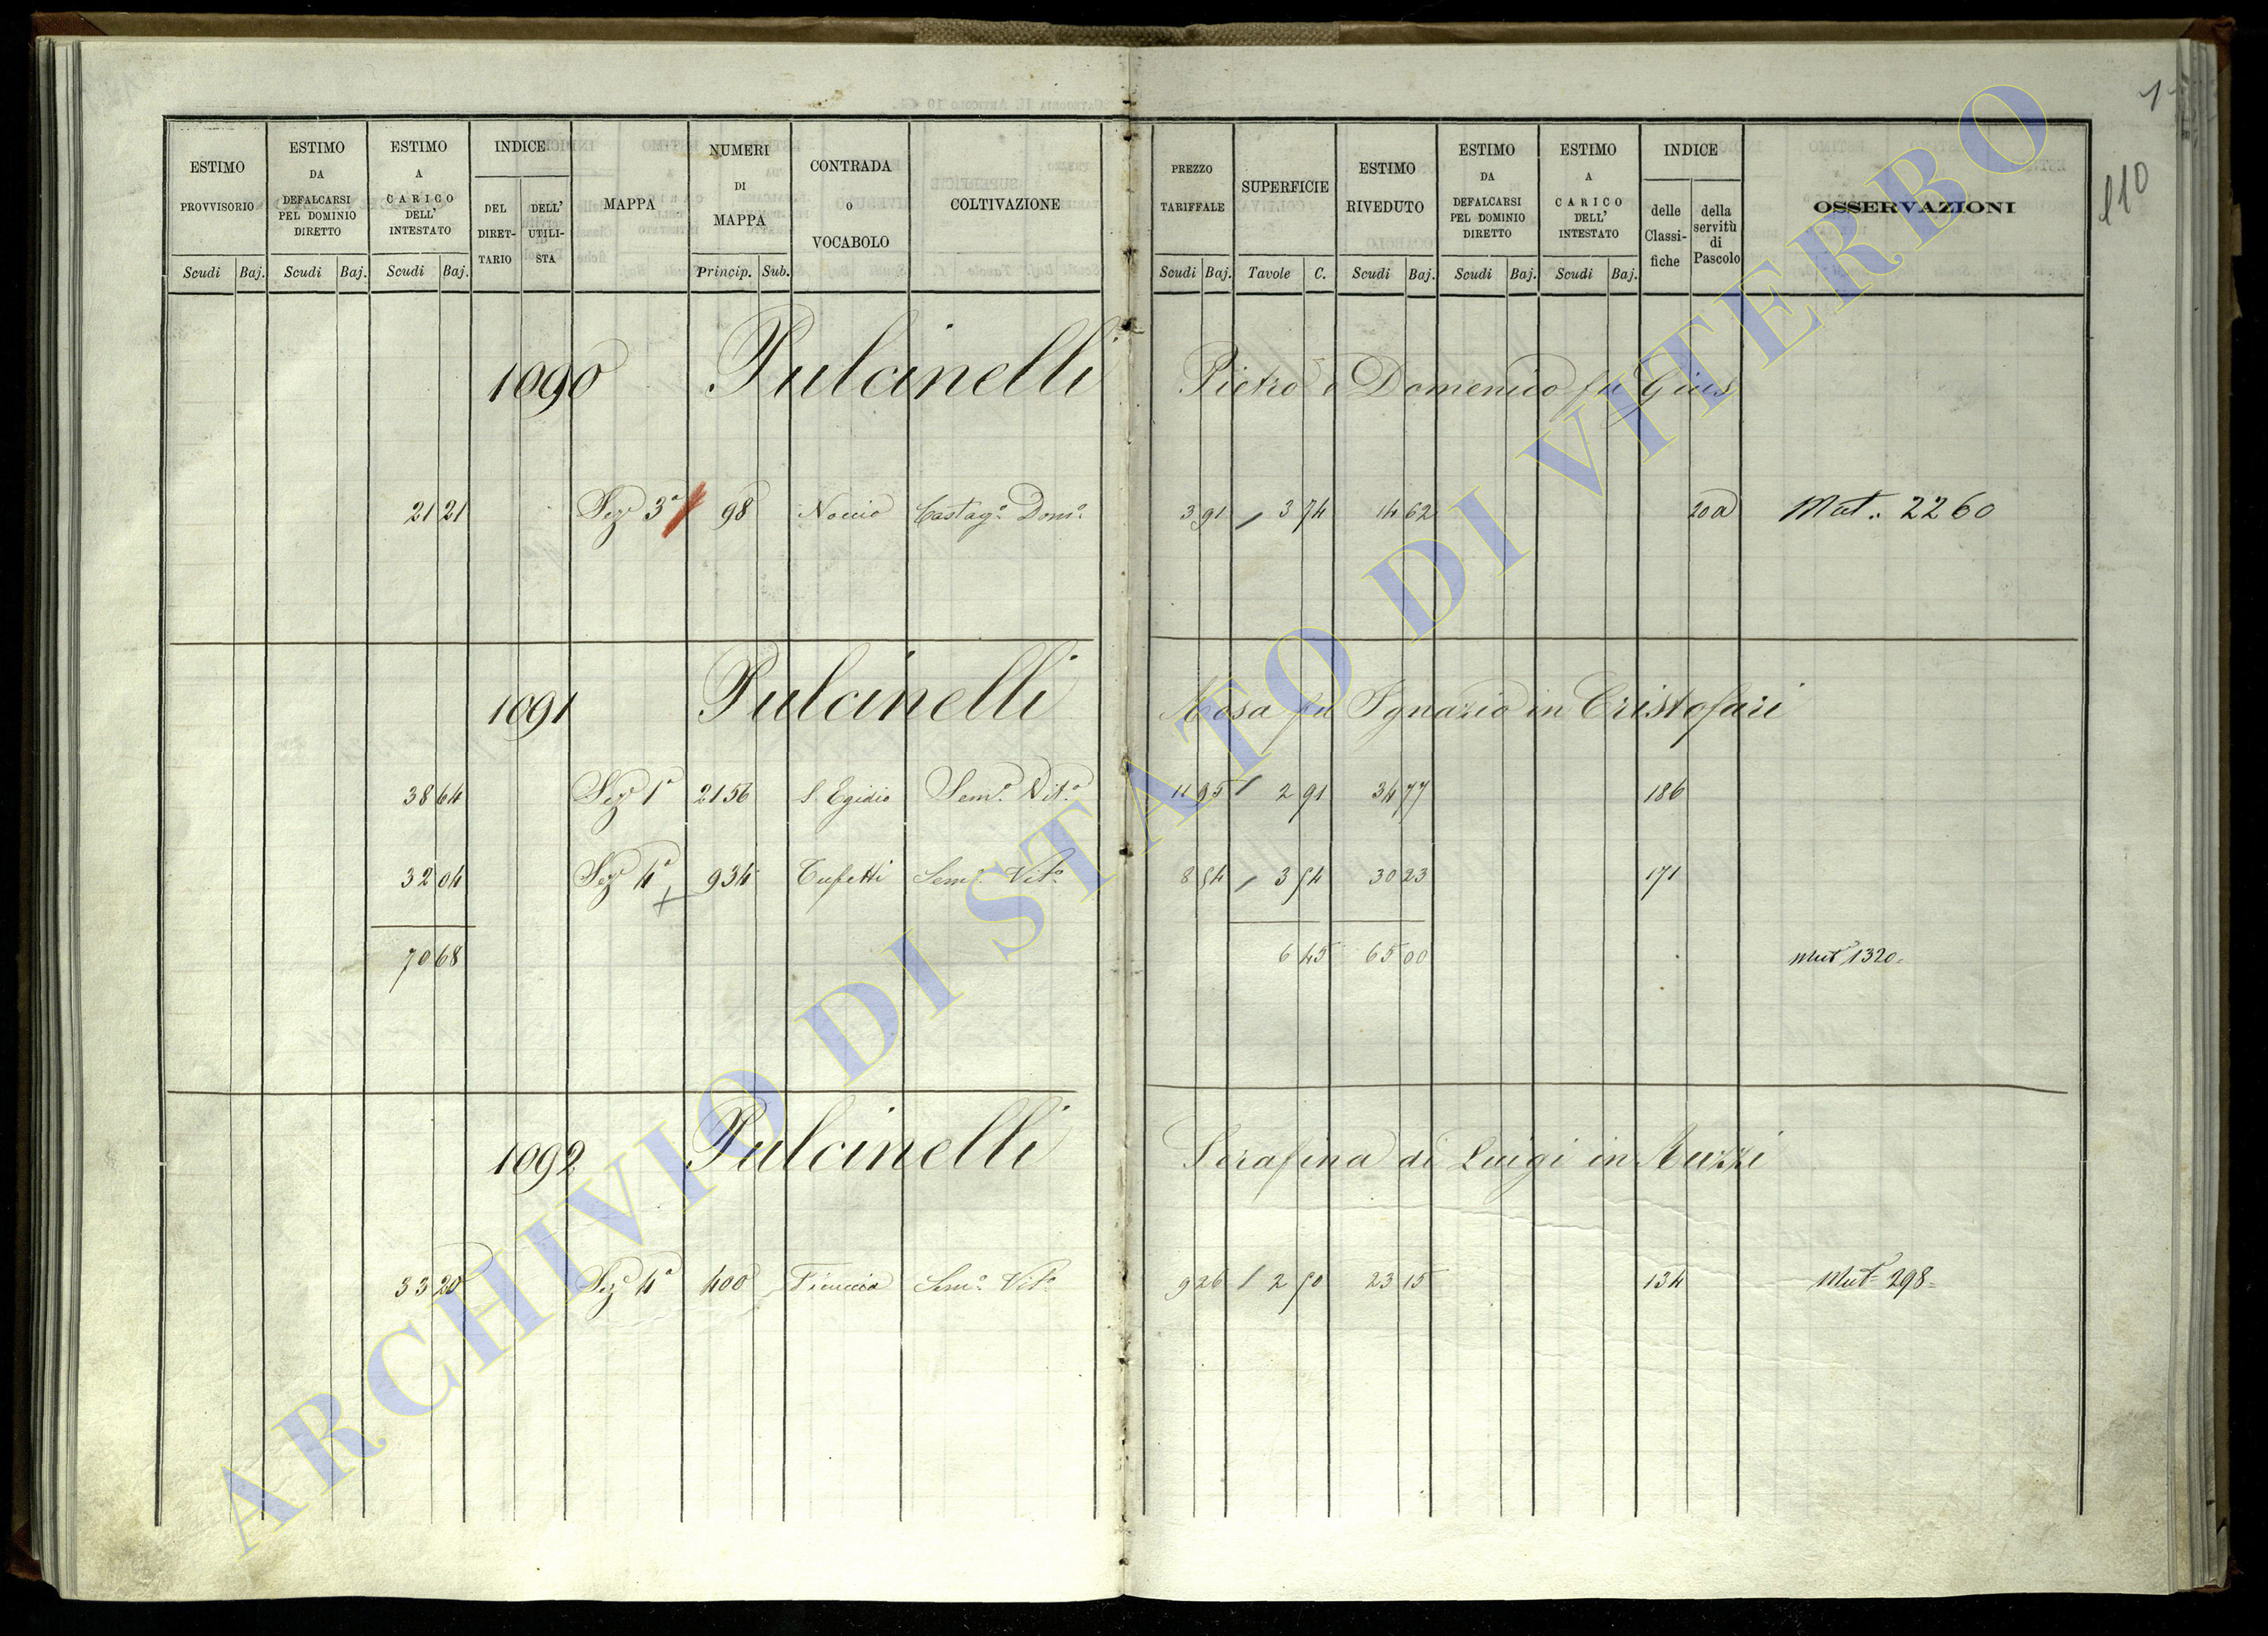 ESTIMO PROVVISORIO Scudi Baj.
ESTIMO DA DEFALCARSI PEL DOMINIO DIRETTO Scudi Baj.
ESTIMO A CARICO DELL' INTESTATO Scudi Baj.
INDICE DEL DIRET-TARIO DELL' UTILI-STA
MAPPA
NUMERI DI MAPPA Princip. Sub.
CONTRADA o VOCABOLO
COLTIVAZIONE
PREZZO TARIFFALE Scudi Baj.
SUPERFICIE Tavole C.
ESTIMO RIVEDUTO Scudi Baj.
ESTIMO DA DEFALCARSI PEL DOMINIO DIRETTO Scudi Baj.
ESTIMO A CARICO DELL' INTESTATO Scudi Baj.
INDICE delle Classi-fiche della servitù di Pascolo
OSSERVAZIONI
110
1090 Pulcinelli Pietro e Domenico fu Gius
21 21 Sez 3ª 98 Noccio Castagº Domº 3 91 3 74 14 62 200 Mut. 2260
1091 Pulcinelli Rosa fu Ignazio in Cristofari
38 64 Sez 1ª 2156 S. Egidio Semº Vitº 11 95 2 91 34 77 186
32 04 Sez 4ª 934 Tufetti Semº Vitº 8 54 3 54 30 23 171
70 68 6 45 65 00 Mut 1320
1092 Pulcinelli Serafina di Luigi in Nuzzi
33 20 Sez 4ª 400 Semº Vitº 9 26 2 50 23 15 134 Mut 298
ARCHIVIO DI STATO DI VITERBO